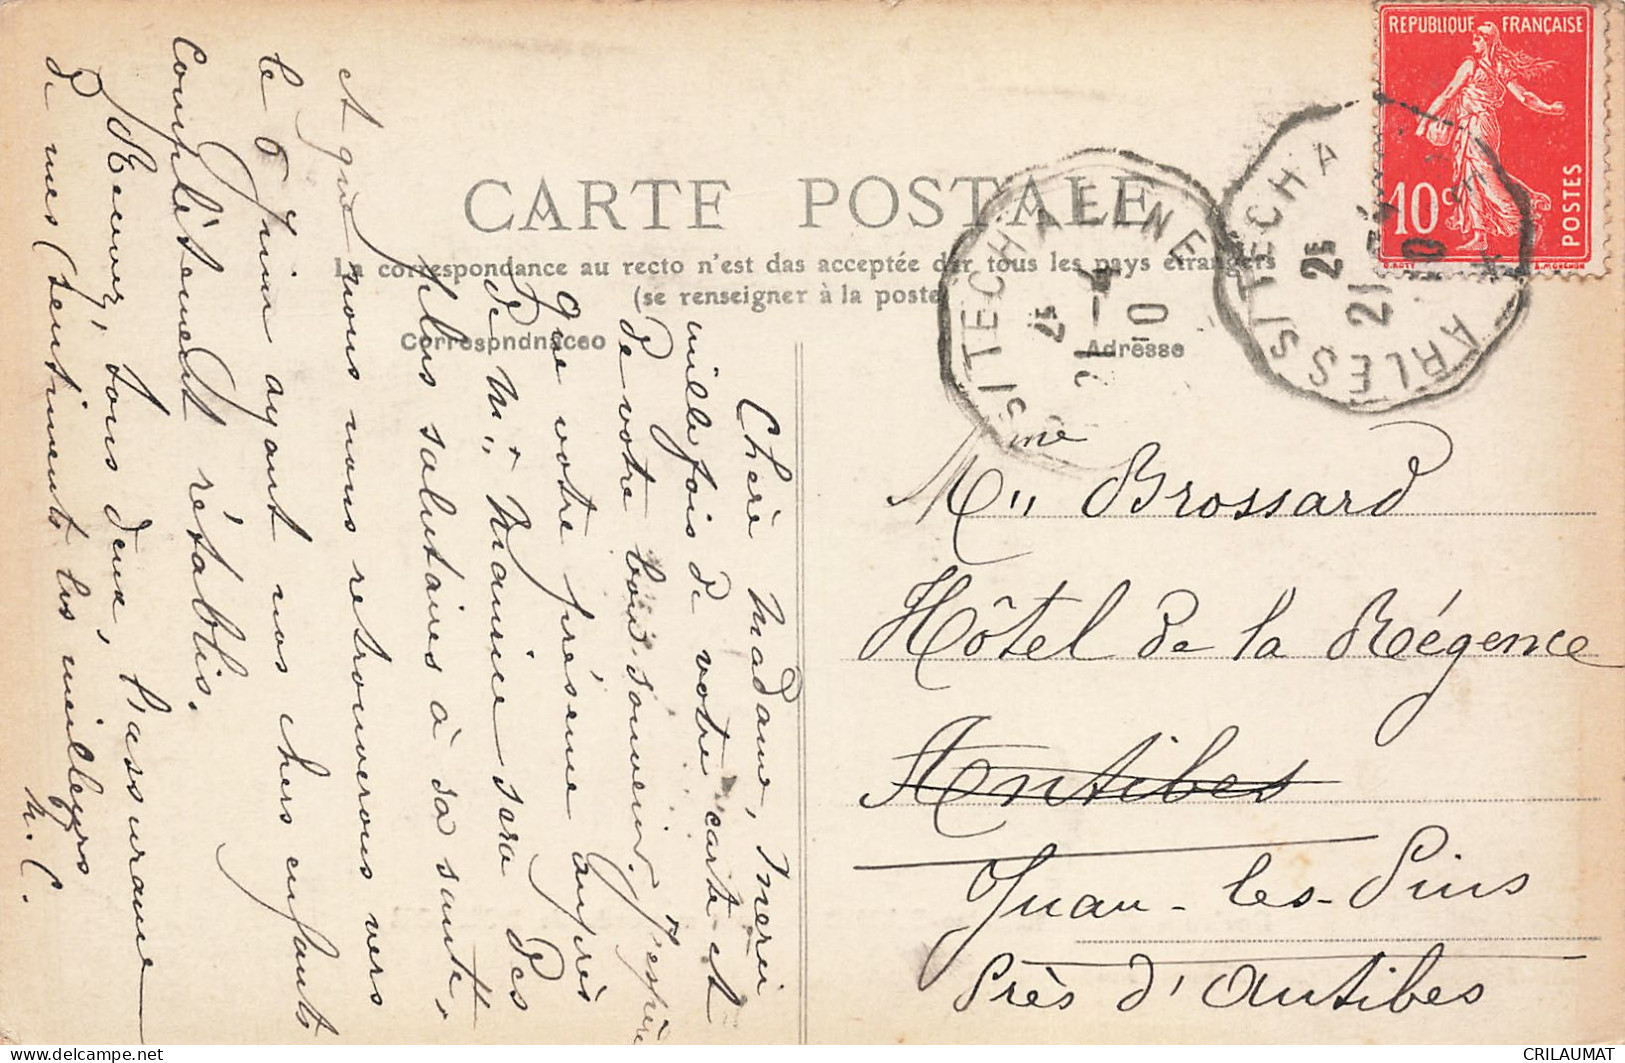 REPUBLIQUE FRANÇAISE
10c
POSTES
CARTE POSTALE
La correspondance au recto n'est das acceptée dar tous les pays étrangers
(se renseigner à la poste)
Correspndnaceo
Adresse
S/TECHALINE
25
21-4
10
ARLES S/TECHA
25
21
10
Chère Madame, Merci
mille fois de votre carte et
de votre bon souvenir. J'espère
que votre présence auprès
de Mr Maurice sera des
plus salutaires à sa santé
et que nous nous retrouverons vers
le 6 Juin ayant nos chers enfants
complètement rétablis.
Recevez, tous deux, l'assurance
de mes sentiments les meilleurs
M. C.
Mme Brossard
Hôtel de la Régence
Antibes
Juan-les-Pins
Près d'Antibes
CRILAUMAT